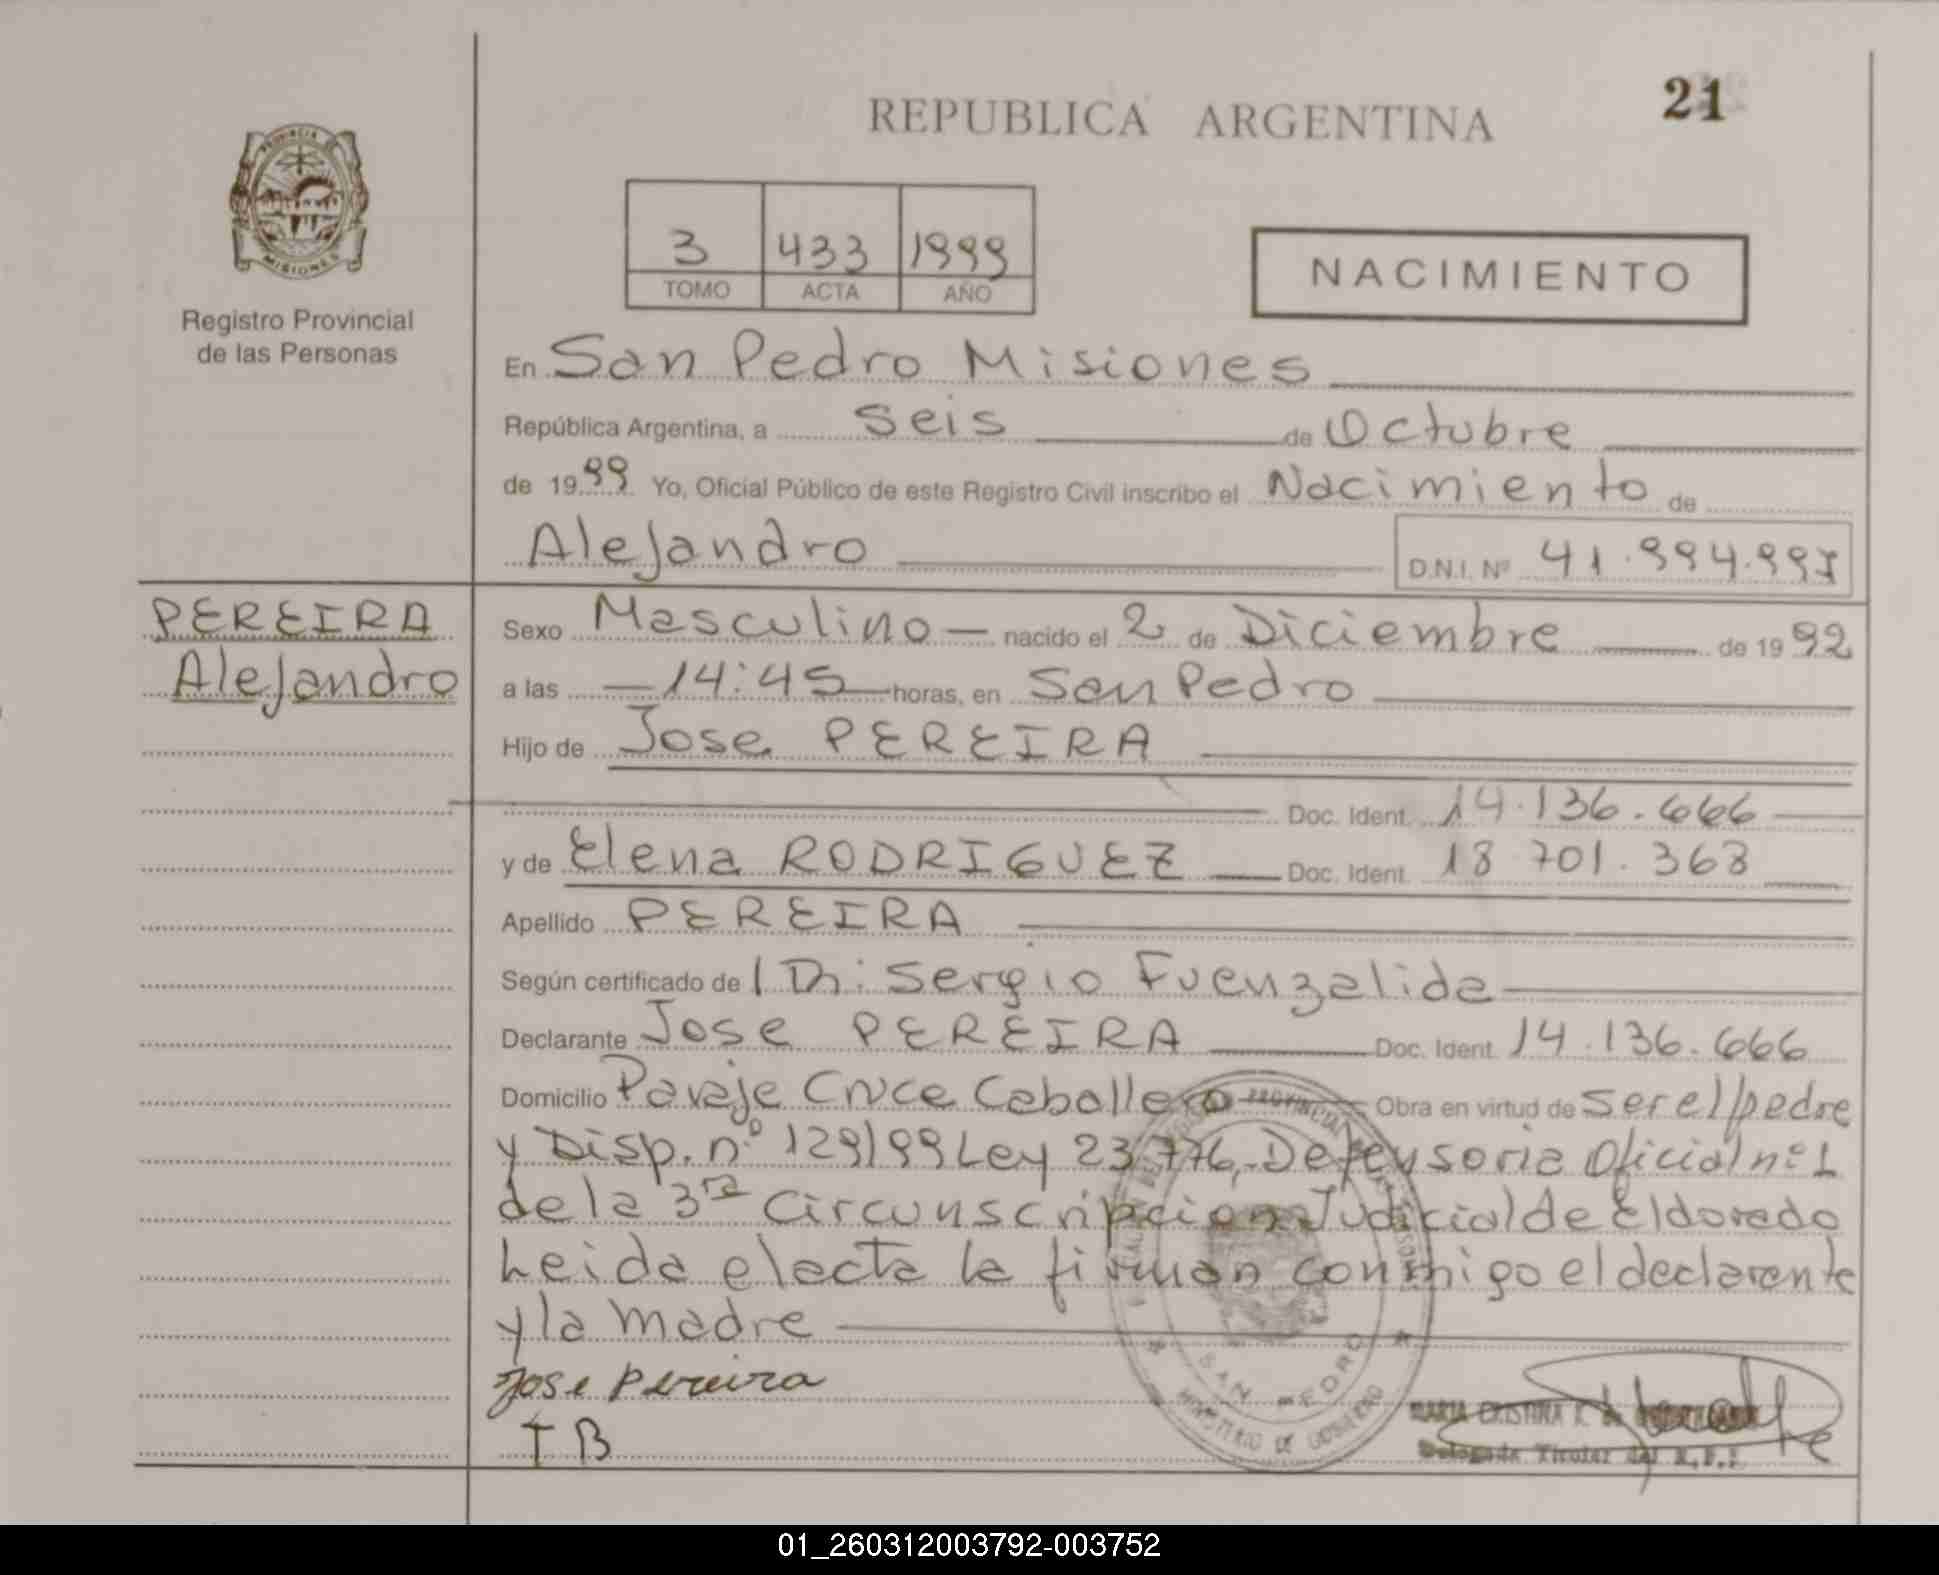 REPUBLICA ARGENTINA
21
PROVINCIA DE
MISIONES
Registro Provincial
de las Personas
3 433 1999
TOMO ACTA AÑO
NACIMIENTO
En San Pedro Misiones
República Argentina, a seis de Octubre
de 1999 Yo, Oficial Público de este Registro Civil inscribo el Nacimiento de
Alejandro D.N.I. Nº 41.994.997
PEREIRA
Alejandro
Sexo Masculino nacido el 2 de Diciembre de 1992
a las 14:45 horas, en San Pedro
Hijo de Jose PEREIRA
Doc. Ident. 14.136.666
y de Elena RODRIGUEZ Doc. Ident. 18 701.368
Apellido PEREIRA
Según certificado de Sergio Fuenzalida
Declarante Jose PEREIRA Doc. Ident. 14.136.666
Domicilio Paraje Cruce Caballero Obra en virtud de ser el/padre
y Disp. nº 129/99 Ley 23776, Defensoria Oficial nº 1
de la 3ra Circunscripcion Judicial de Eldorado
Leida el acta la firman conmigo el declarante
y la madre
Jose pereira
T B
SAN PEDRO
MINISTERIO DE GOBIERNO
MARIA CRISTINA R. de
Delegada Titular del R.P.P.
01_260312003792-003752